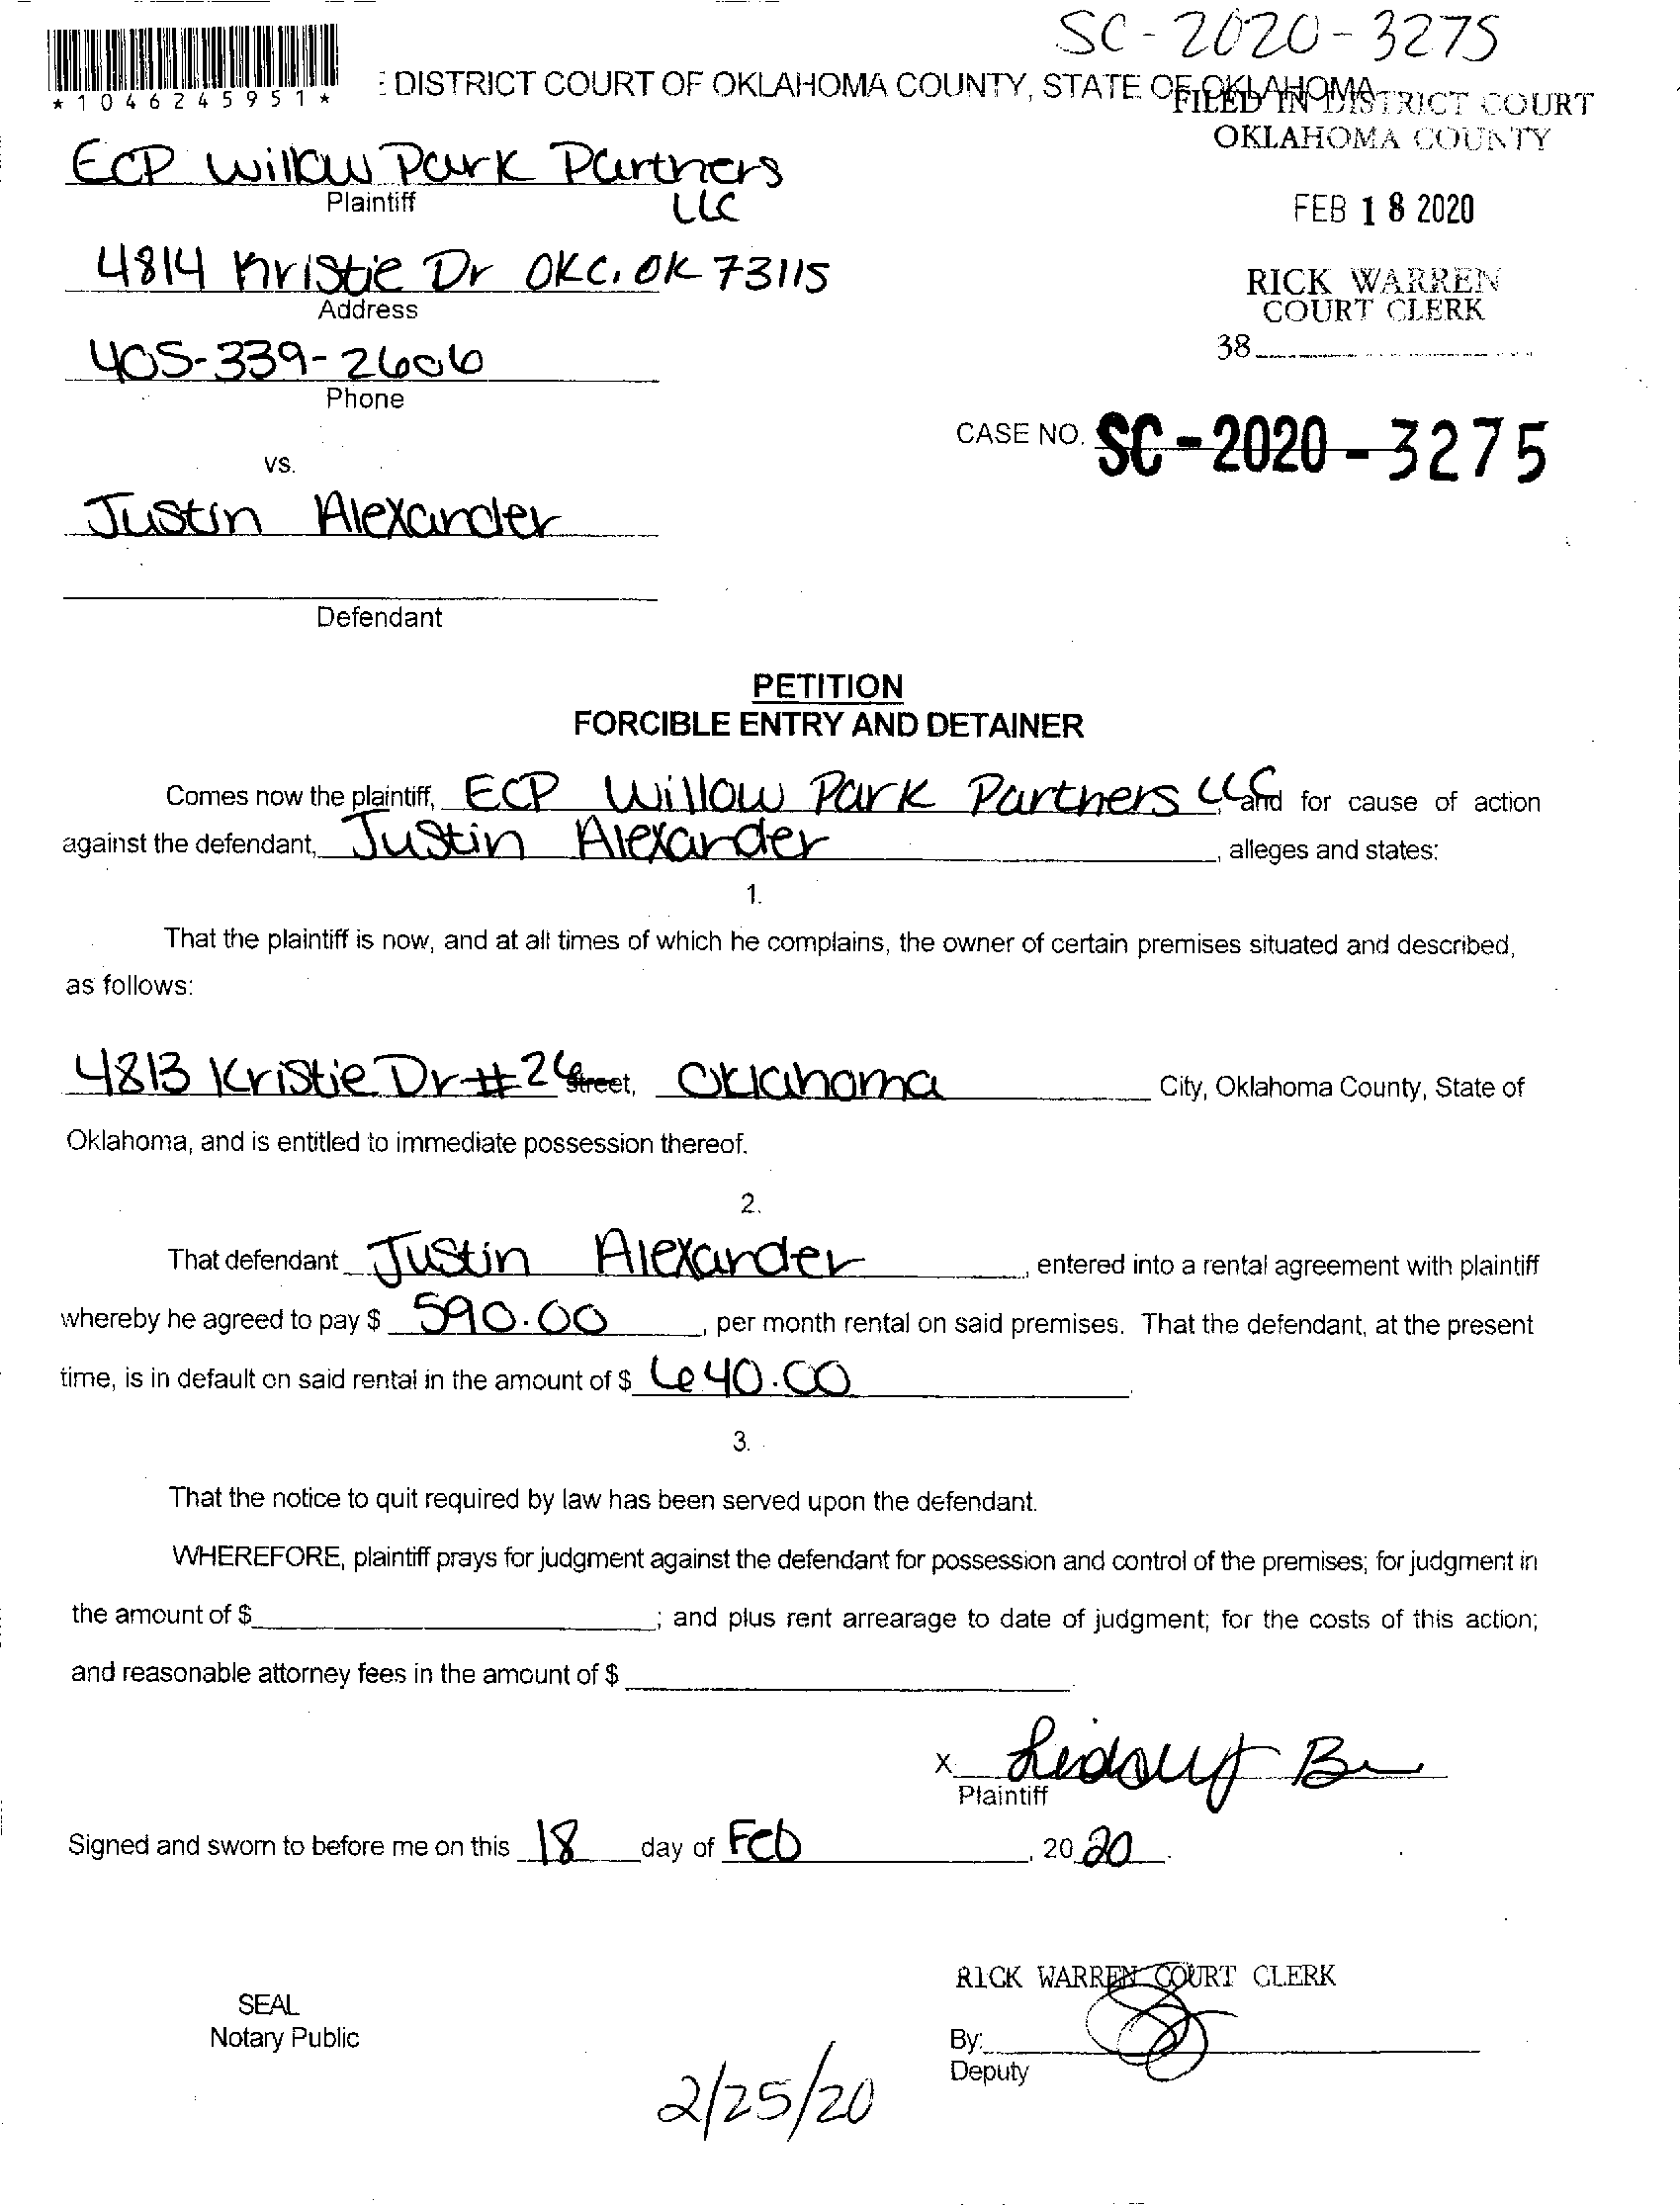 SC-2020-3275
*1046245951*
E DISTRICT COURT OF OKLAHOMA COUNTY, STATE OF OKLAHOMA
FILED IN DISTRICT COURT
OKLAHOMA COUNTY
ECP Willow Park Partners
Plaintiff
LLC
FEB 18 2020
4814 Kristie Dr OKC, OK 73115
Address
RICK WARREN
COURT CLERK
38
405-339-2606
Phone
CASE NO. SC-2020-3275
vs.
Justin Alexander
Defendant
PETITION
FORCIBLE ENTRY AND DETAINER
Comes now the plaintiff, ECP Willow Park Partners LLC, and for cause of action
against the defendant, Justin Alexander, alleges and states:
1.
That the plaintiff is now, and at all times of which he complains, the owner of certain premises situated and described,
as follows:
4813 Kristie Dr #26 Street, Oklahoma City, Oklahoma County, State of
Oklahoma, and is entitled to immediate possession thereof.
2.
That defendant Justin Alexander, entered into a rental agreement with plaintiff
whereby he agreed to pay $ 590.00, per month rental on said premises. That the defendant, at the present
time, is in default on said rental in the amount of $ 640.00
3.
That the notice to quit required by law has been served upon the defendant.
WHEREFORE, plaintiff prays for judgment against the defendant for possession and control of the premises; for judgment in
the amount of $ ; and plus rent arrearage to date of judgment; for the costs of this action;
and reasonable attorney fees in the amount of $
X
Plaintiff
Signed and sworn to before me on this 18 day of Feb, 2020.
RICK WARREN COURT CLERK
SEAL
Notary Public
By:
Deputy
2/25/20